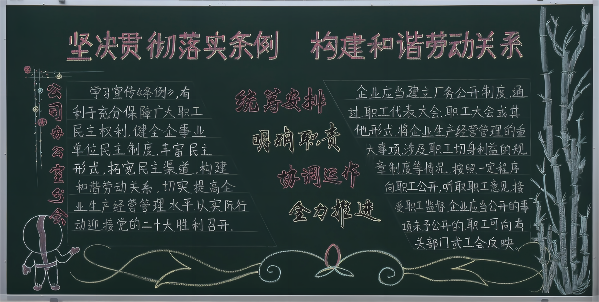 坚决贯彻落实条例 构建和谐劳动关系
学习宣传《条例》,有
利于充分保障广大职工
民主权利,健全企事业
单位民主制度,丰富民主
形式,拓宽民主渠道,构建
和谐劳动关系,切实提高企
业生产经营管理水平以实际行
动迎接党的二十大胜利召开.
统筹安排
明确职责
协调运作
全力推进
企业应当建立厂务公开制度,通
过职工代表大会、职工大会或其
他形式,将企业生产经营管理的重
大事项,涉及职工切身利益的规
章制度等情况,按照一定程序
向职工公开,听取职工意见,接
受职工监督.企业应当公开的事
项未予公开的,职工可向有
关部门或工会反映.